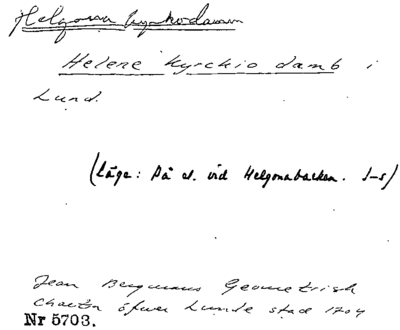 Helgona kyrkodamm
Helene kyrckio damb i
Lund.
(Läge: På el. vid Helgonabacken. J-s)
Jean Bergmans Geometrisk
Charta öfwer Lunde stad 1704
Nr 5703.